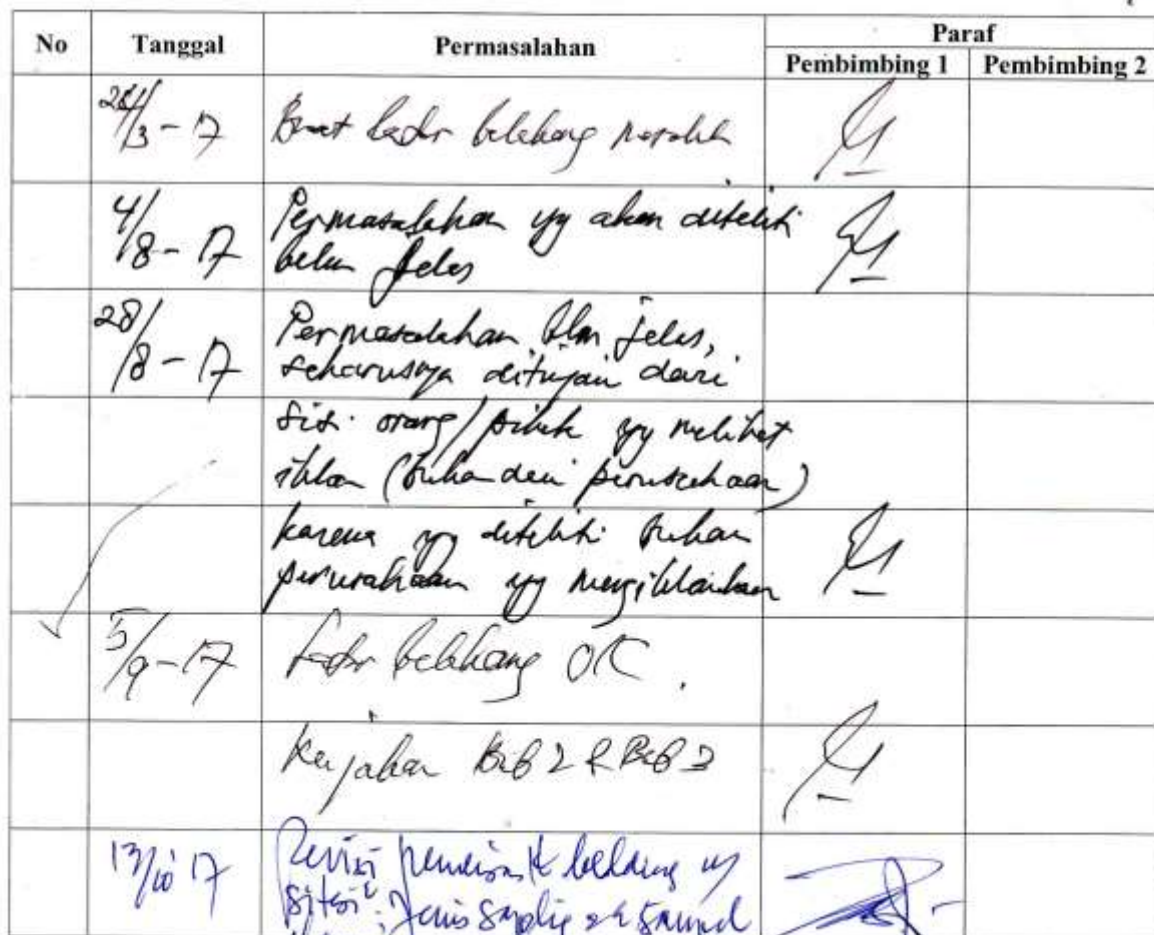 No Tanggal Permasalahan Paraf
Pembimbing 1 Pembimbing 2
/3 - 17 Buat latar belakang masalah
4/8 - 17 Permasalahan yg akan diteliti
belum jelas
28/8 - 17 Permasalahan blm jelas,
seharusnya ditujau dari
sisi orang/pihak yg melihat
iklan (bukan dari perusahaan)
karena yg diteliti bukan
perusahaan yg mengiklankan
5/9 - 17 Latar belakang OK.
Kerjakan Bab 2 & Bab 3
13/10 17 Revisi
Jenis